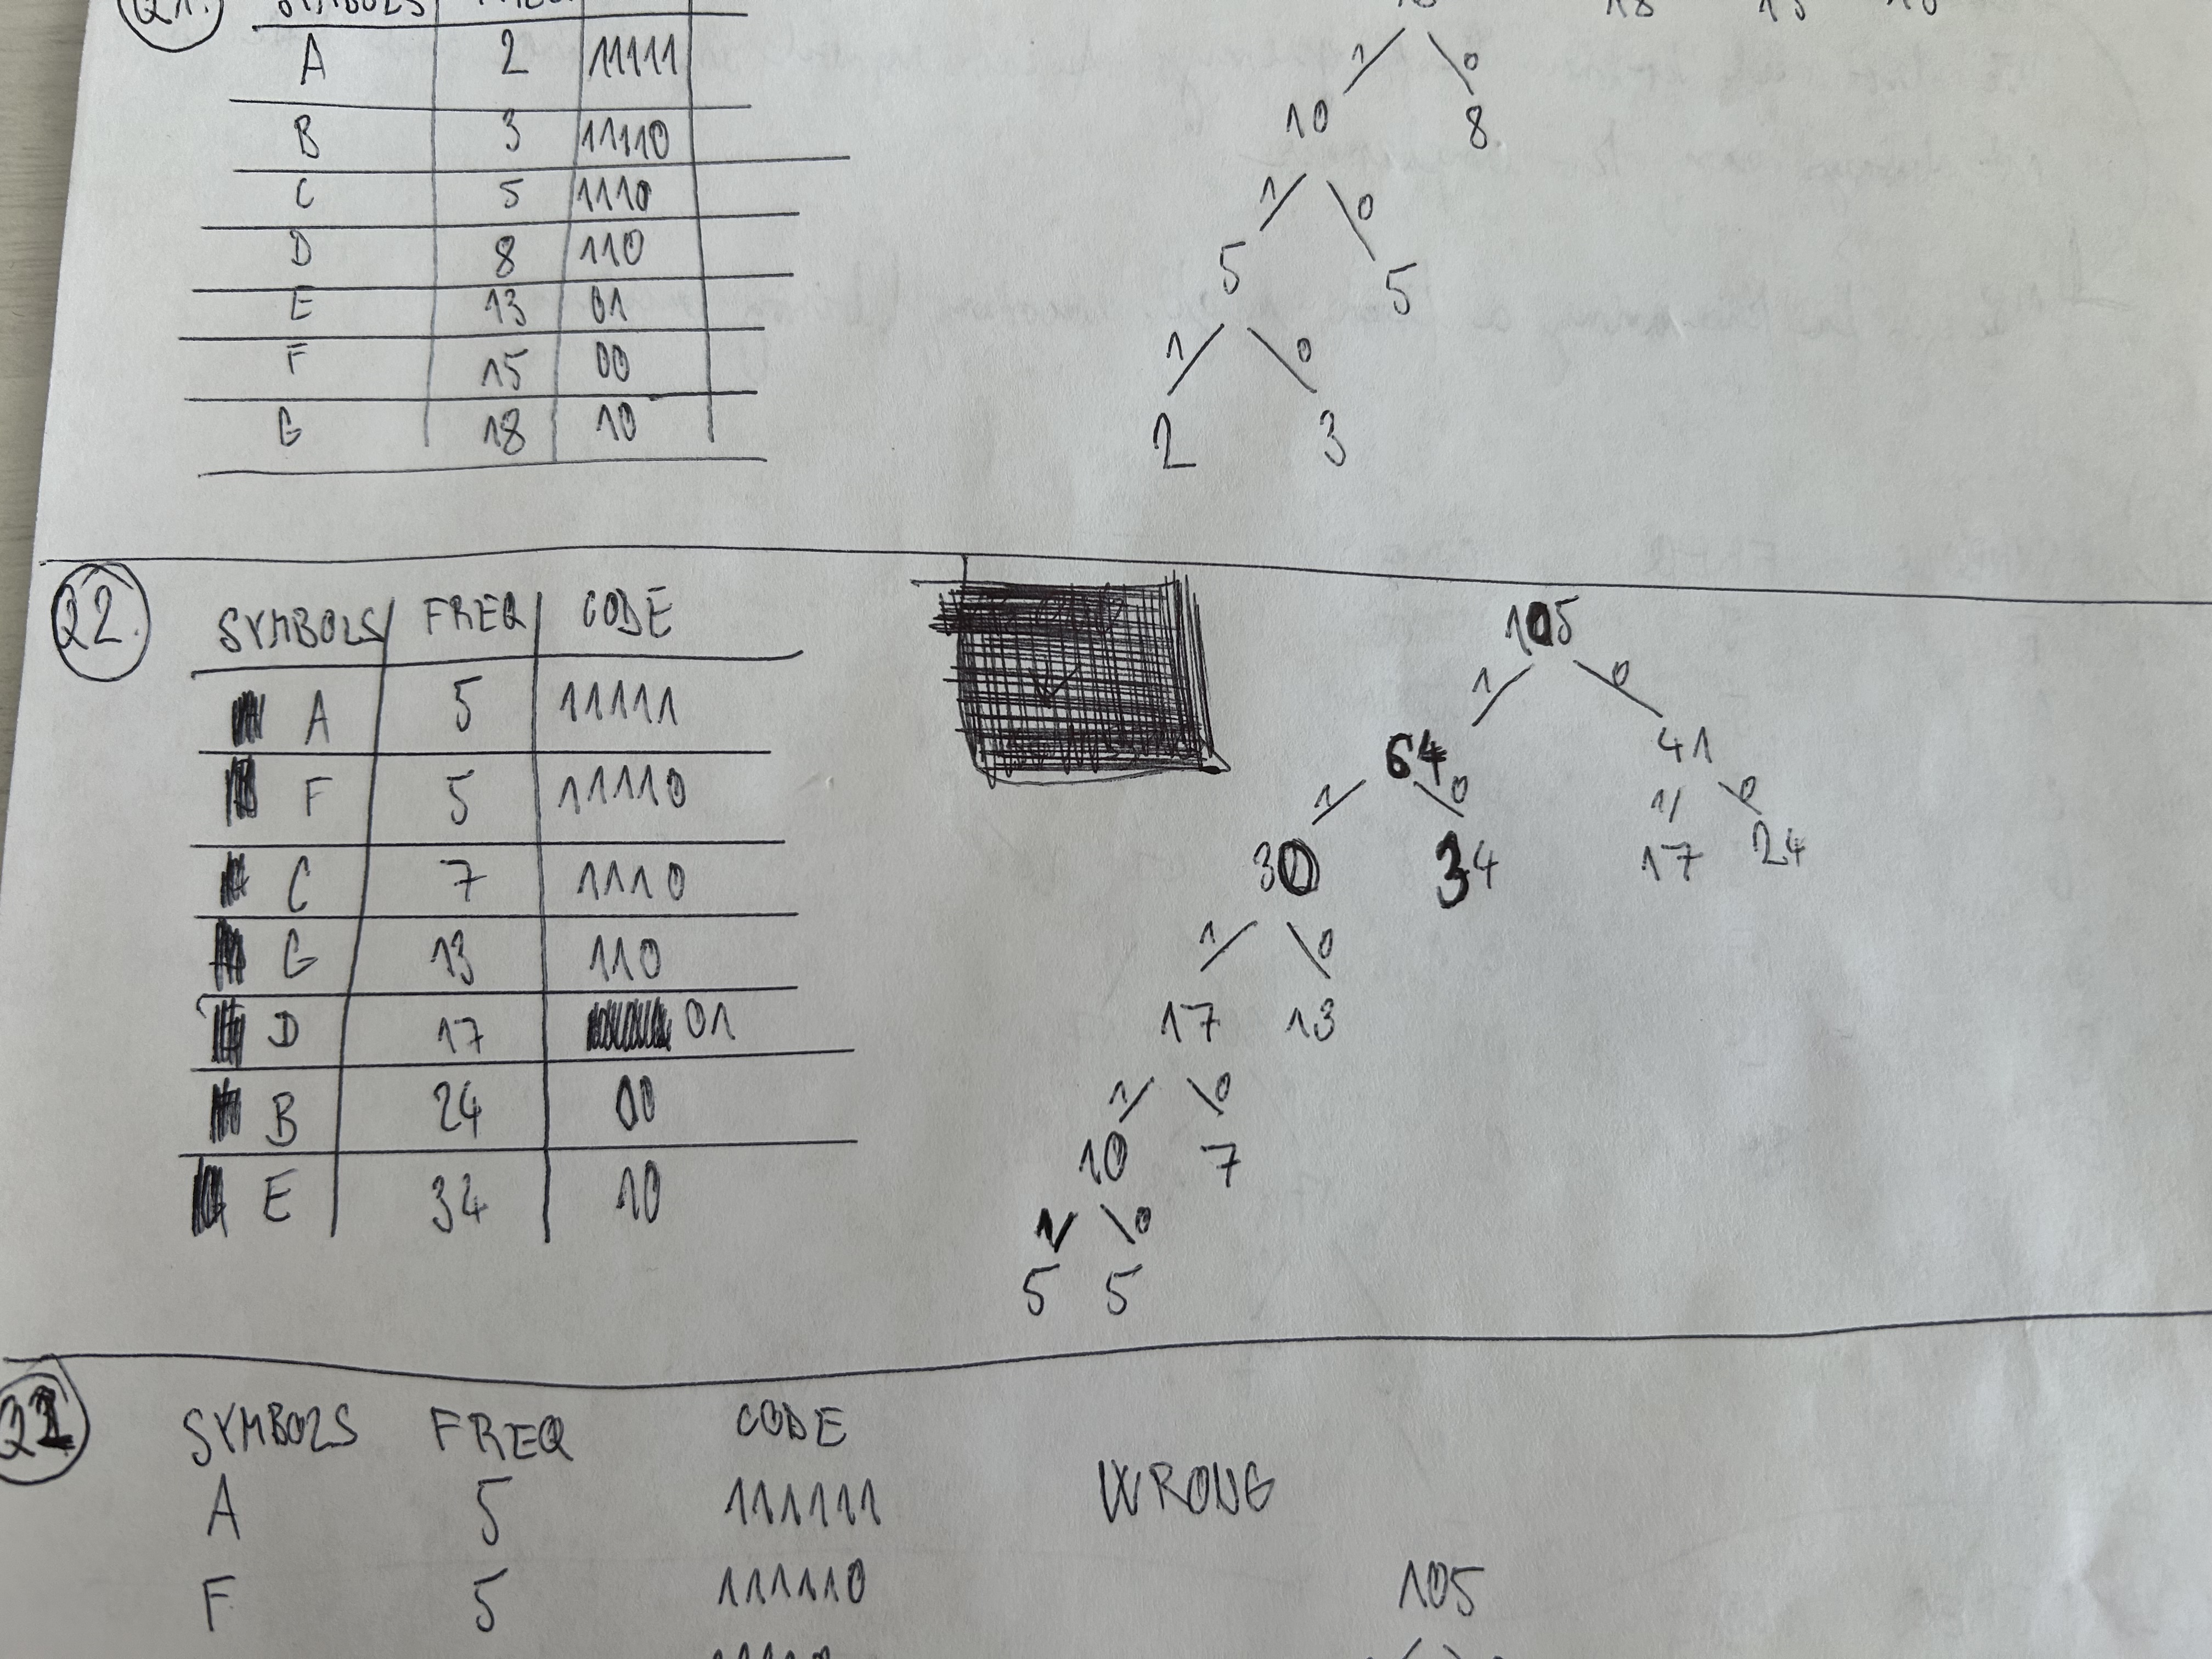 Q1.
SYMBOLS
A 2 11111
B 3 11110
C 5 1110
D 8 110
E 13 01
F 15 00
G 18 10
18 15 18
10 1 0
1 0 8
5
1 0 5
2 3
Q2.
SYMBOLS FREQ CODE
A 5 11111
F 5 11110
C 7 1110
G 13 110
D 17 01
B 24 00
E 34 10
105
1 0
64 41
1 0 1 0
30 34 17 24
1 0
17 13
1 0
10 7
1 0
5 5
Q2
SYMBOLS FREQ CODE
A 5 111111
F 5 111110
WRONG
105